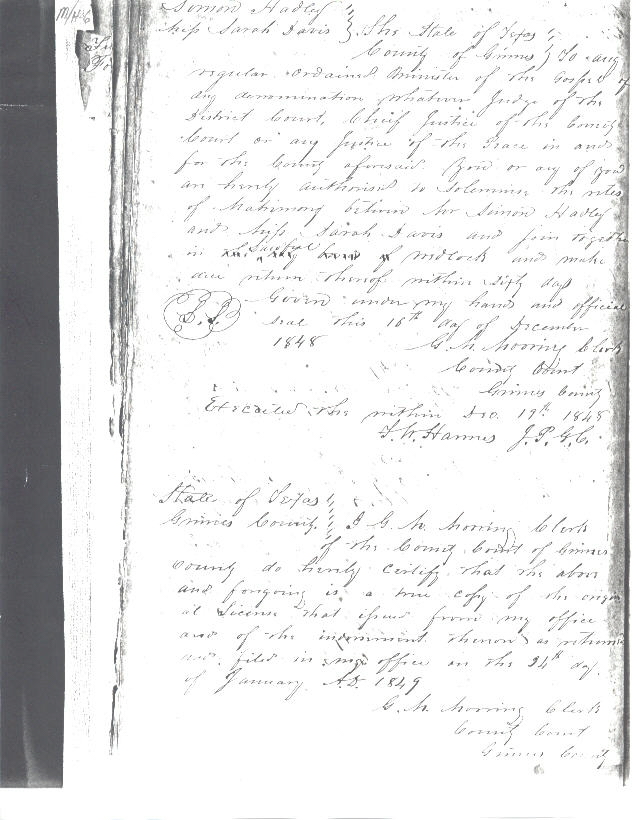 M/46
Simon Hadley
Miss Sarah Davis } The State of Texas
County of Grimes } To any
regular ordained Minister of the Gospel of
any denomination whatever Judge of the
District Court, Chief Justice of the County
Court or any Justice of the Peace in and
for the County aforesaid You or any of you
are hereby authorised to solemnize the rites
of Matrimony between Mr Simon Hadley
and Miss Sarah Davis and join together
in Lawful wedlock and make
due return thereof within Sixty days
L.S. Given under my hand and official
seal this 16th day of December
1848 G. M. Mooring Clerk
County Court
Grimes County
Executed the within Dec. 19th 1848
J. P. G. C.
State of Texas
Grimes County. I G. M. Mooring Clerk
of the County Court of Grimes
County do hereby certify that the above
and forgoing is a true copy of the origin
al License that issued from my office
and of the thereon as returned
and filed in my office on the 24th day
of January A.D. 1849
G. M. Mooring Clerk
County Court
Grimes County